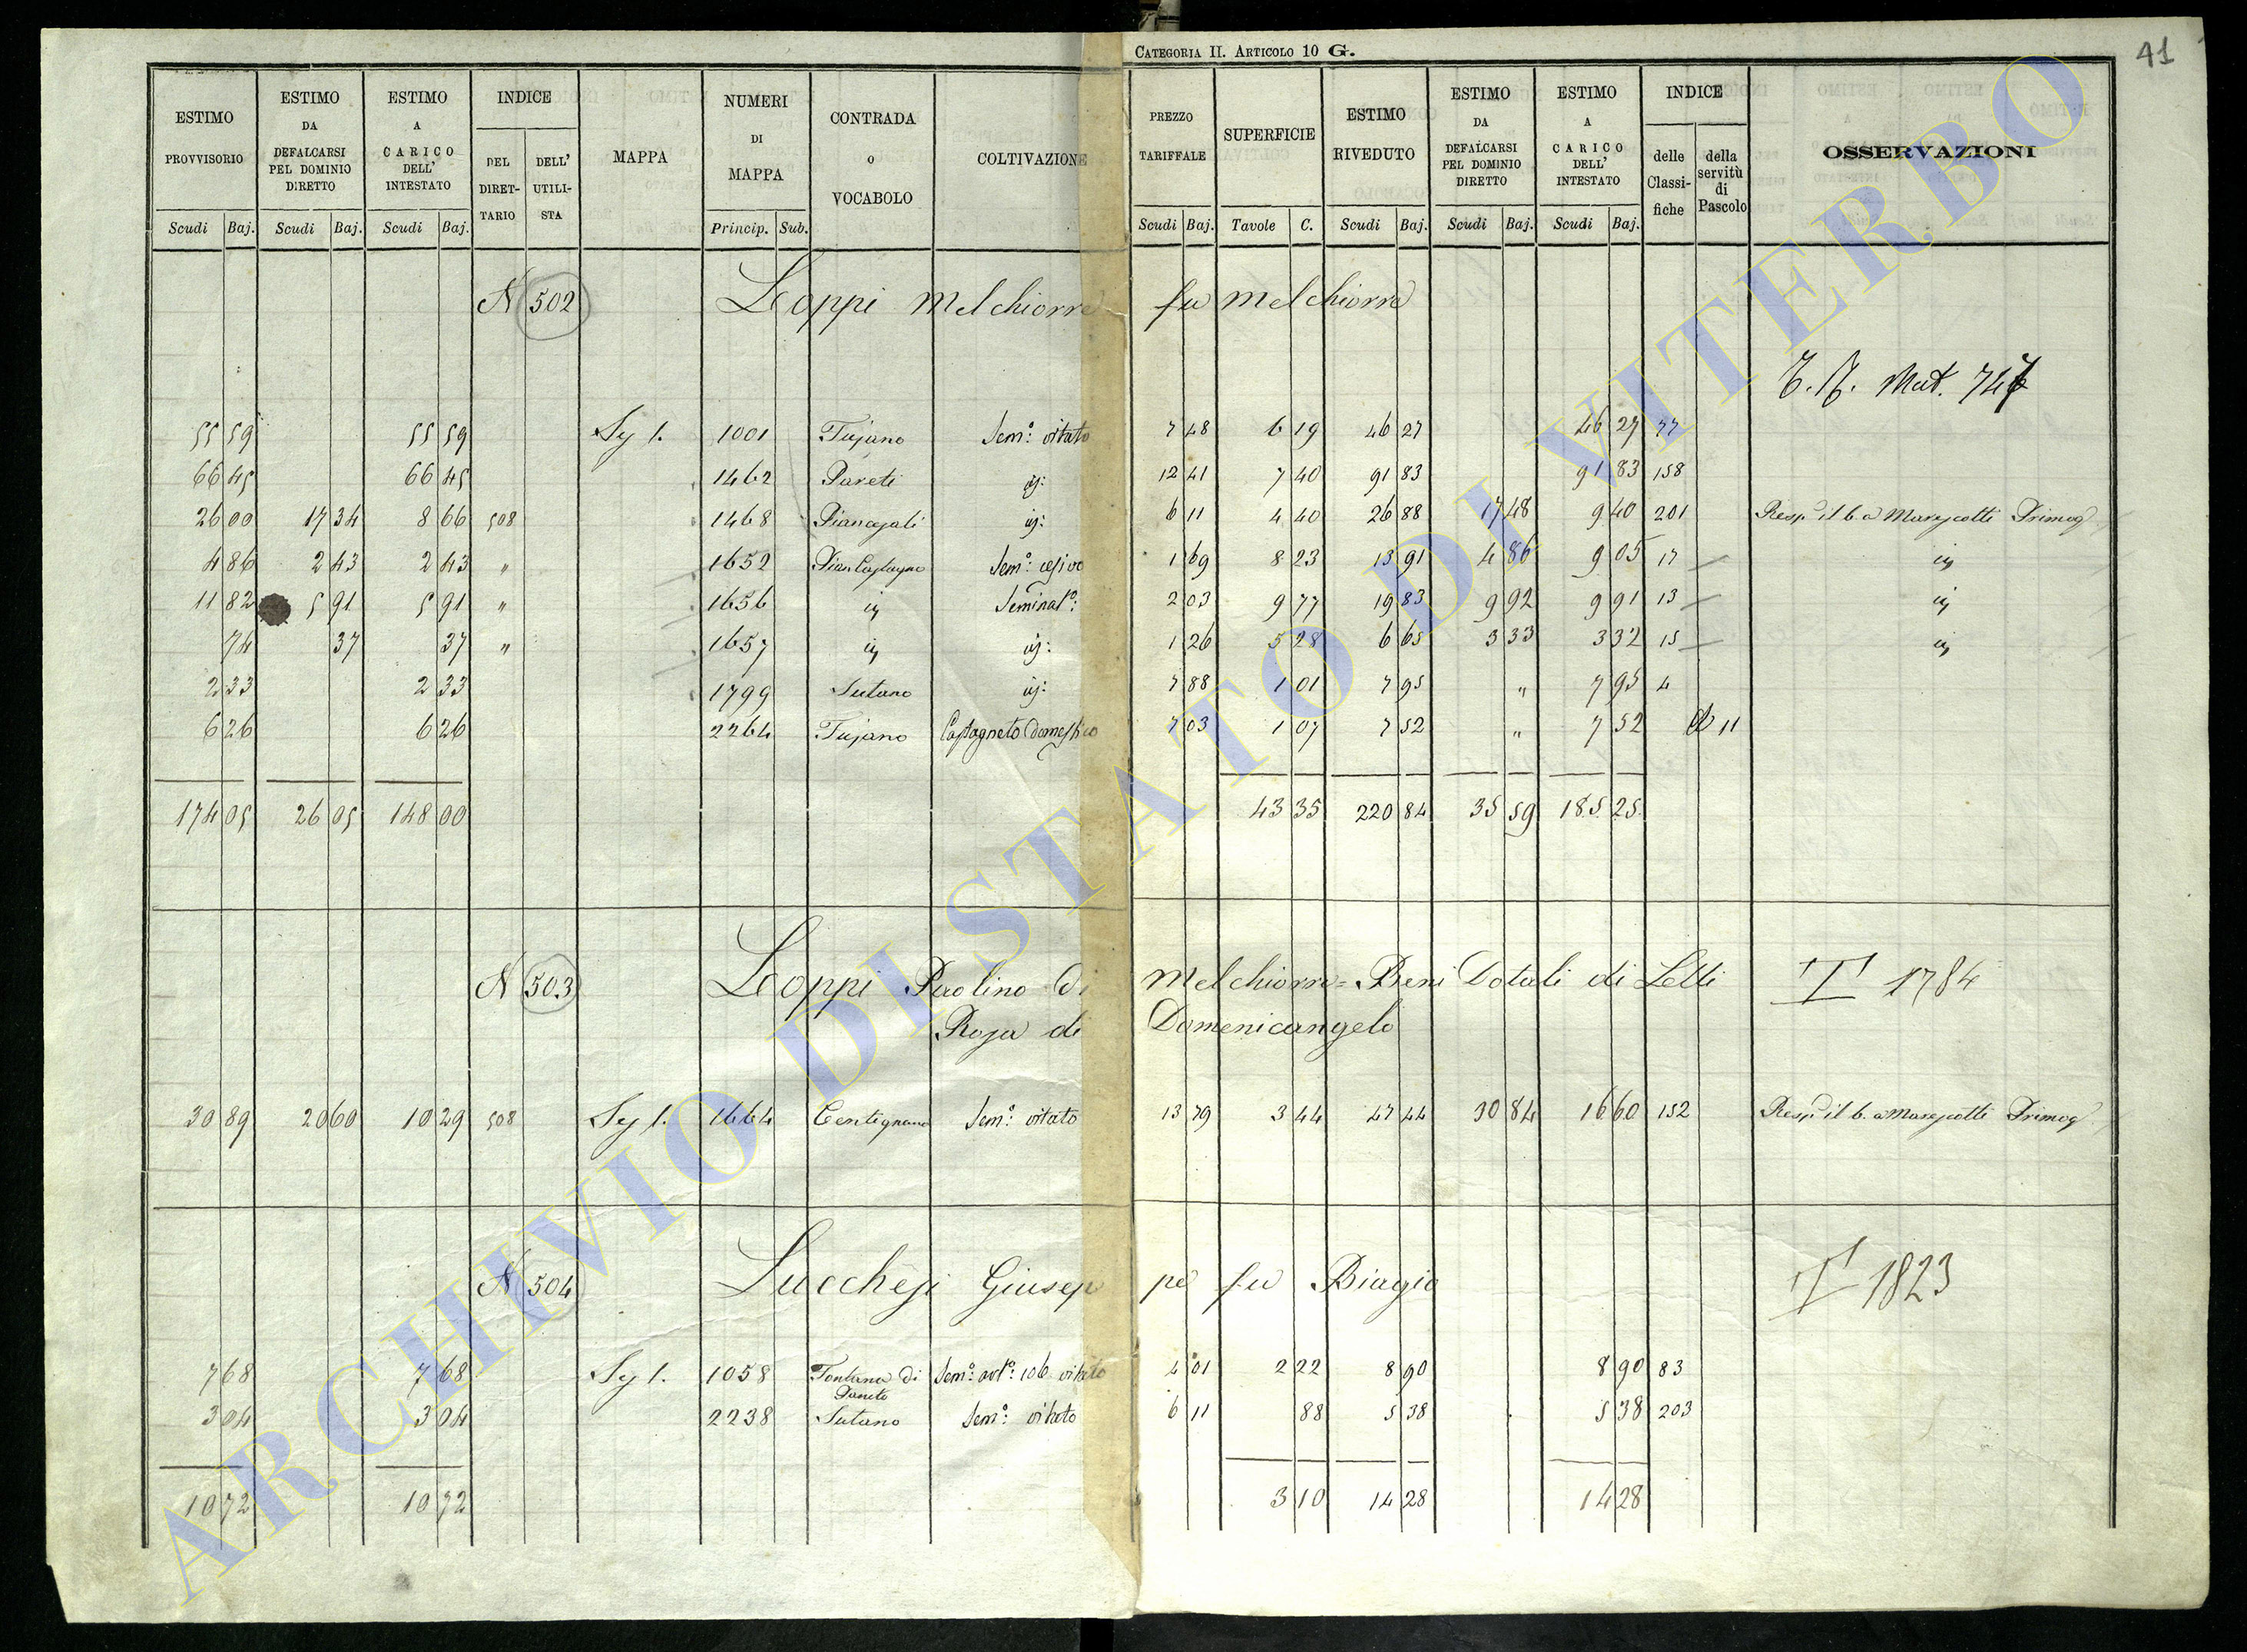 CATEGORIA II. ARTICOLO 10 G.
41
ESTIMO PROVVISORIO Scudi Baj.
ESTIMO DA DEFALCARSI PEL DOMINIO DIRETTO Scudi Baj.
ESTIMO A CARICO DELL' INTESTATO Scudi Baj.
INDICE DEL DIRET-TARIO DELL' UTILI-STA
MAPPA
NUMERI DI MAPPA Princip. Sub.
CONTRADA O VOCABOLO
COLTIVAZIONE
PREZZO TARIFFALE Scudi Baj.
SUPERFICIE Tavole C.
ESTIMO RIVEDUTO Scudi Baj.
ESTIMO DA DEFALCARSI PEL DOMINIO DIRETTO Scudi Baj.
ESTIMO A CARICO DELL' INTESTATO Scudi Baj.
INDICE delle Classi-fiche della servitù di Pascolo
OSSERVAZIONI
N 502 Leoppi Melchiorre fu Melchiorre
Mat.
55 59 55 59 1001 Fujano Sem.º vitato 7 48 6 19 46 27 46 27 77
66 45 66 45 1462 Pareti 12 41 7 40 91 83 91 83 158
26 00 17 34 8 66 508 1468 6 11 4 40 26 88 17 48 9 40 201 il b. a Primog
4 86 2 43 2 43 " 1652 Sem.º 1 69 8 23 13 91 4 86 9 05 17
11 82 5 91 5 91 " 1656 Seminat.º 2 03 9 77 19 83 9 92 9 91 13
74 37 37 " 1657 1 26 5 28 6 65 3 33 3 32 15
2 33 2 33 1799 Sutano 7 88 1 01 7 95 " 7 95 4
6 26 6 26 2264 Fujano Castagneto Domestico 7 03 1 07 7 52 " 7 52 11
174 05 26 05 148 00 43 35 220 84 35 59 185 25
N 503 Leoppi Paolino di Melchiorre = Beni Dotali di Lelli T 1784
Rosa di Domenicangelo
30 89 20 60 10 29 508 1664 Centignano Sem.º vitato 13 79 3 44 47 44 30 84 16 60 152 il b. a Primog
N 504 Lucchesi Giuseppe fu Biagio T 1823
7 68 7 68 1058 Fontana di Sem.º vitato 4 01 2 22 8 90 8 90 83
3 04 3 04 2238 Sutano Sem.º vitato 6 11 88 5 38 5 38 203
10 72 10 72 3 10 14 28 14 28
ARCHIVIO DI STATO DI VITERBO